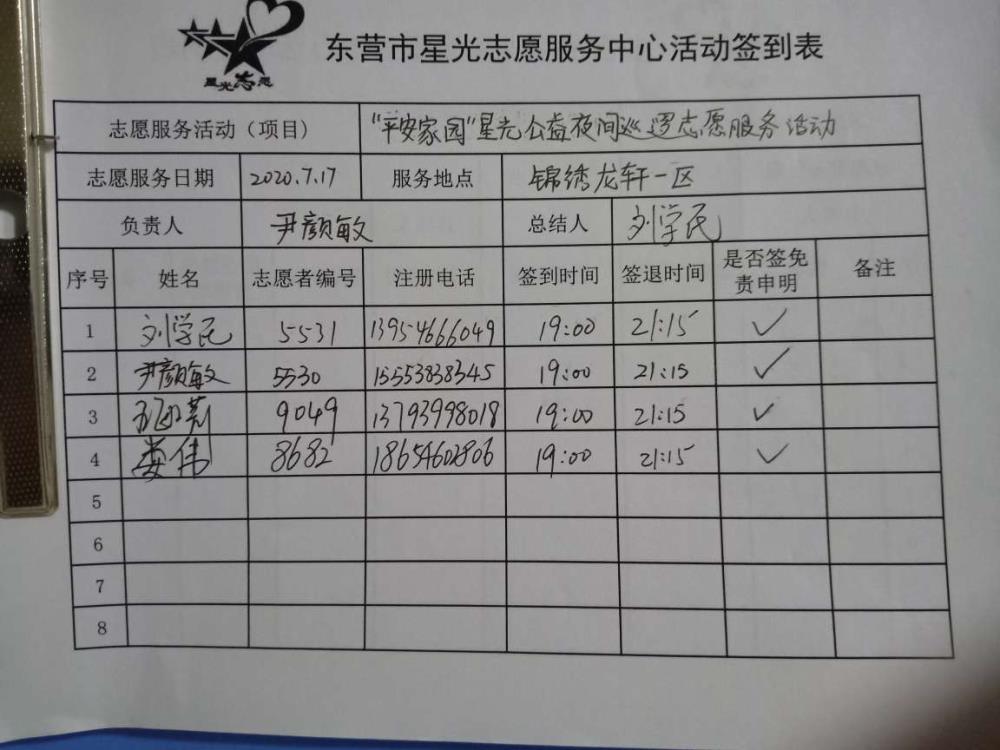 星光志愿
东营市星光志愿服务中心活动签到表
志愿服务活动（项目） “平安家园”星光公益夜间巡逻志愿服务活动
志愿服务日期 2020.7.17 服务地点 锦绣龙轩一区
负责人 尹颜敏 总结人 刘学民
序号 姓名 志愿者编号 注册电话 签到时间 签退时间 是否签免责申明 备注
1 刘学民 5531 13954666049 19:00 21:15 ✓
2 尹颜敏 5530 15553838345 19:00 21:15 ✓
3 9049 13793998018 19:00 21:15 ✓
4 娄伟 8682 18654602806 19:00 21:15 ✓
5
6
7
8